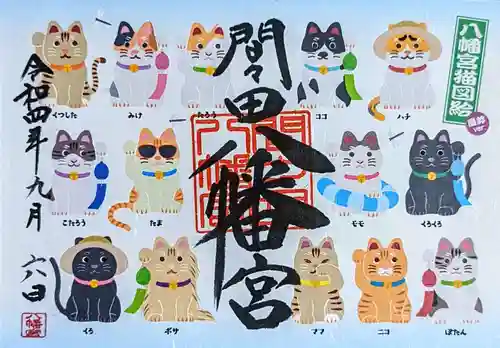 八幡宮猫図絵
風鈴ver.
間々田八幡宮
令和四年九月
六日
くつした
みけ
たろう
ココ
ハチ
こたろう
たま
モモ
くろくろ
くろ
ボサ
ママ
ニコ
ぼたん